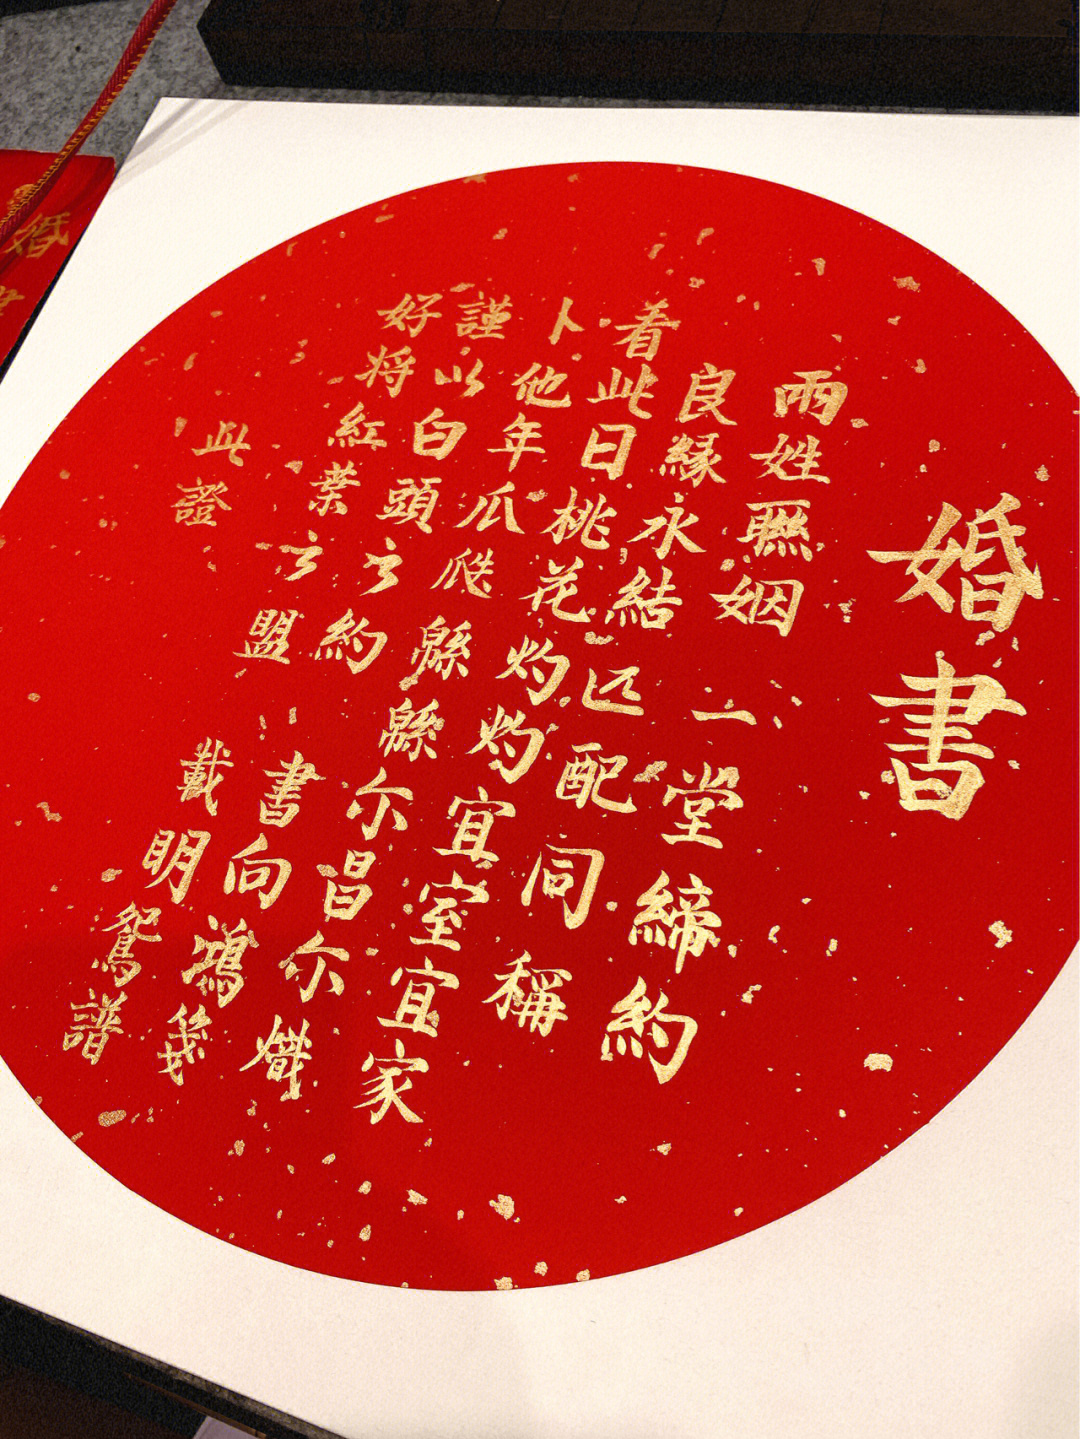 婚書
兩姓聯姻一堂締約
良緣永結匹配同稱
看此日桃花灼灼宜室宜家
卜他年瓜瓞緜緜尔昌尔熾
謹以白頭之約書向鴻箋
好将紅葉之盟載明鴛譜
此證
婚